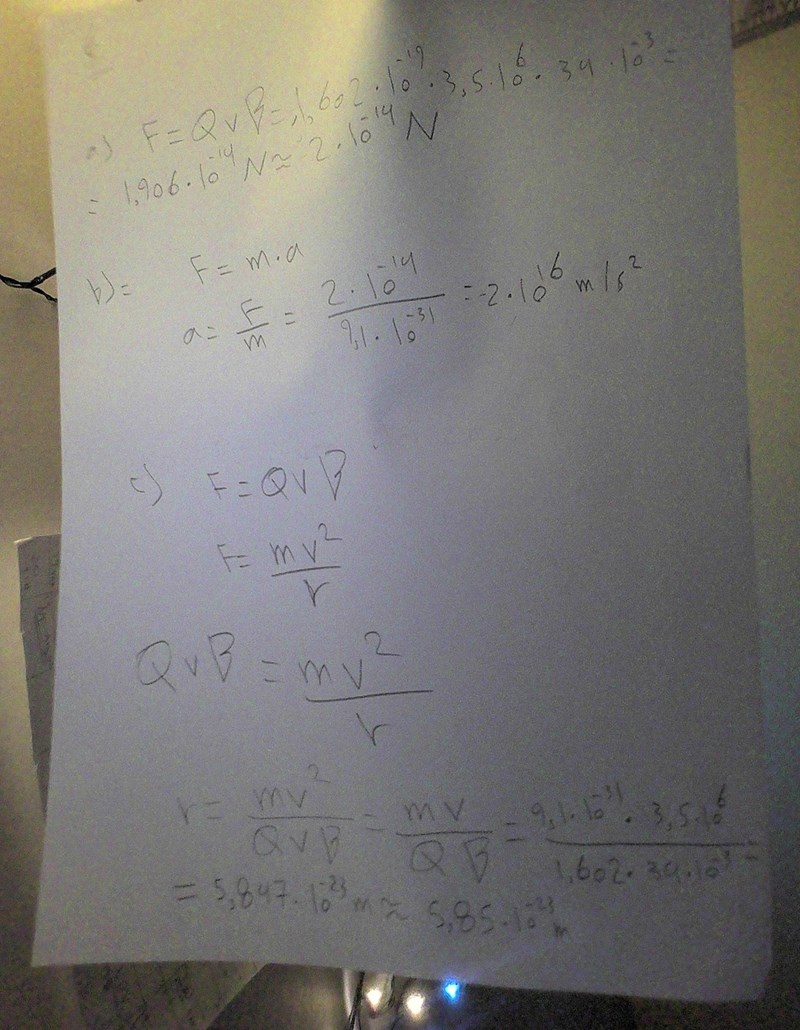 a) F = QvB = 1,602·10⁻¹⁹·3,5·10⁶·34·10⁻³ =
= 1,906·10⁻¹⁴ N ≈ 2·10⁻¹⁴ N
b) = F = m·a
a = F/m = 2·10⁻¹⁴ / 9,1·10⁻³¹ = 2·10¹⁶ m/s²
c) F = QvB
F = mv²/r
QvB = mv²/r
r = mv²/QvB = mv/QB = 9,1·10⁻³¹·3,5·10⁶ / 1,602·34·10⁻³ =
= 5,847·10⁻²³ m ≈ 5,85·10⁻²³ m